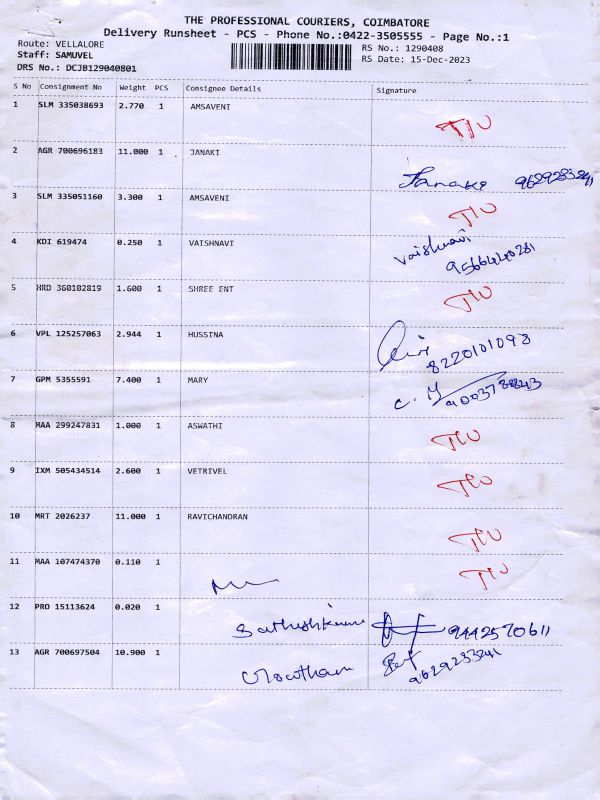 THE PROFESSIONAL COURIERS, COIMBATORE
Delivery Runsheet - PCS - Phone No.:0422-3505555 - Page No.:1
Route: VELLALORE RS No.: 1290408
Staff: SAMUVEL RS Date: 15-Dec-2023
DRS No.: DCJB129040801
S No Consignment No Weight PCS Consignee Details Signature
1 SLM 335038693 2.770 1 AMSAVENI
2 AGR 700696183 11.000 1 JANAKI
Janaki
3 SLM 335051160 3.300 1 AMSAVENI
4 KDI 619474 0.250 1 VAISHNAVI Vaishnavi
9566440281
5 HRD 360102819 1.600 1 SHREE ENT
6 VPL 125257063 2.944 1 HUSSINA
8220101098
7 GPM 5355591 7.400 1 MARY
8 MAA 299247831 1.000 1 ASWATHI
9 IXM 505434514 2.600 1 VETRIVEL
10 MRT 2026237 11.000 1 RAVICHANDRAN
11 MAA 107474370 0.110 1
12 PRO 15113624 0.020 1
9442570611
13 AGR 700697504 10.900 1
Gowtham